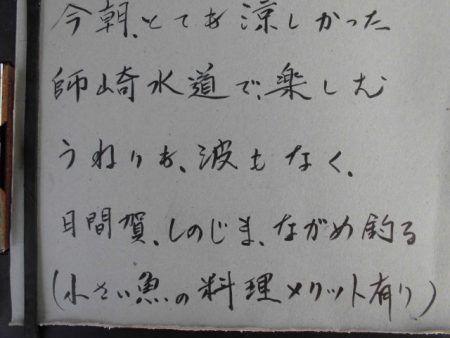 今朝、とても涼しかった
師崎水道で、楽しむ
うねりも、波もなく、
日間賀、しのじま、ながめ釣る
(小さい魚の料理メリット有り)